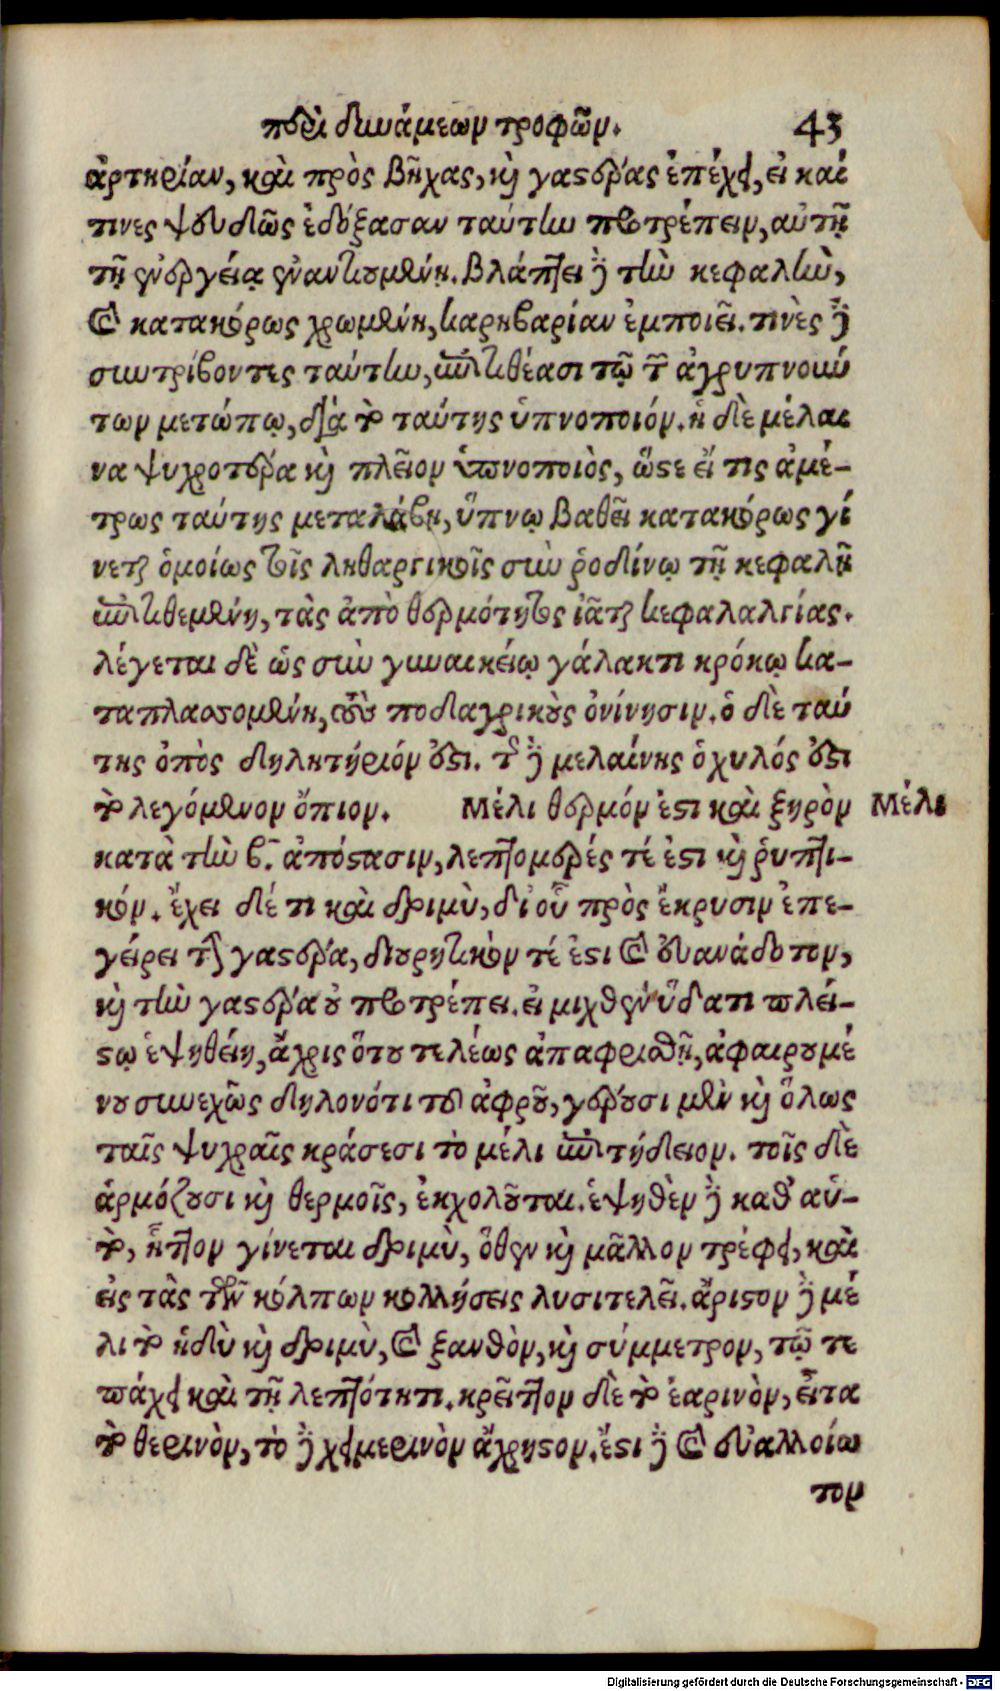 περὶ δυνάμεων τροφῶν. 43
ἀρτηρίαν, καὶ πρὸς βῆχας, καὶ γαστέρας ἐπέχει, εἰ καί
τινες ψευδῶς ἐδόξασαν ταύτην προτρέπειν, αὐτῇ
τῇ ἐνεργείᾳ ἐναντιουμένῃ. βλάπτει δὲ τὴν κεφαλὴν,
καὶ κατακόρως χρωμένη, καρηβαρίαν ἐμποιεῖ. τινὲς δὲ
συντρίβοντες ταύτην, ἐπιτιθέασι τῷ τῶν ἀγρυπνούν
των μετώπῳ, διὰ τὸ ταύτης ὑπνοποιόν. ἡ δὲ μέλαι
να ψυχροτέρα καὶ πλεῖον ὑπνοποιὸς, ὥστε εἴ τις ἀμέ-
τρως ταύτης μεταλάβῃ, ὕπνῳ βαθεῖ κατακόρως γί
νεται ὁμοίως τοῖς ληθαργικοῖς σὺν ῥοδίνῳ τῇ κεφαλῇ
ἐπιτιθεμένη, τὰς ἀπὸ θερμότητος ἰᾶται κεφαλαλγίας.
λέγεται δὲ ὡς σὺν γυναικείῳ γάλακτι κρόκῳ κα-
ταπλασσομένη, τοὺς ποδαγρικοὺς ὀνίνησιν. ὁ δὲ ταύ
της ὀπὸς δηλητήριόν ἐστι. τῆς δὲ μελαίνης ὁ χυλός ἐστι
τὸ λεγόμενον ὄπιον. Μέλι θερμόν ἐστι καὶ ξηρὸν Μέλι
κατὰ τὴν β. ἀπόστασιν, λεπτομερές τέ ἐστι καὶ ῥυπτι-
κόν. ἔχει δέ τι καὶ δριμὺ, δι οὗ πρὸς ἔκρυσιν ἐπε-
γείρει τὴν γαστέρα, διουρητικόν τέ ἐστι καὶ εὐανάδοτον,
καὶ τὴν γαστέρα οὐ προτρέπει. εἰ μιχθὲν ὕδατι πλεί-
στῳ ἑψηθείη, ἄχρις ὅτου τελέως ἀπαφρισθῇ, ἀφαιρουμέ
νου συνεχῶς δηλονότι τοῦ ἀφροῦ, γέρουσι μὲν καὶ ὅλως
ταῖς ψυχραῖς κράσεσι τὸ μέλι ἐπιτήδειον. τοῖς δὲ
ἁρμόζουσι καὶ θερμοῖς, ἐκχολοῦται. ἑψηθὲν δὲ καθ αὑ-
τὸ, ἧττον γίνεται δριμὺ, ὅθεν καὶ μᾶλλον τρέφει, καὶ
εἰς τὰς τῶν κόλπων κολλήσεις λυσιτελεῖ. ἄριστον δὲ μέ
λι τὸ ἡδὺ καὶ δριμὺ, καὶ ξανθὸν, καὶ σύμμετρον, τῷ τε
πάχει καὶ τῇ λεπτότητι. κρεῖττον δὲ τὸ ἐαρινὸν, εἶτα
τὸ θερινὸν, τὸ δὲ χειμερινὸν ἄχρηστον. ἔστι δὲ καὶ εὐαλλοίω
τον
Digitalisierung gefördert durch die Deutsche Forschungsgemeinschaft - DFG